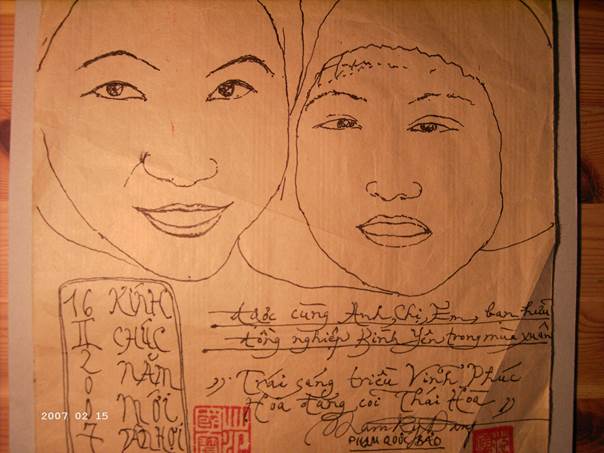 16 KÍNH
II CHÚC
2 NĂM
0 MỚI
7 HỢI
được cùng Anh, Chị, Em, bạn hữu
đồng nghiệp Bính Yên trong mùa xuân
,, Trái sáng triều Vĩnh Phúc
Hòa đăng cõi Thái Hòa ,,
PHẠM QUỐC BẢO
國寶
2007 02 15